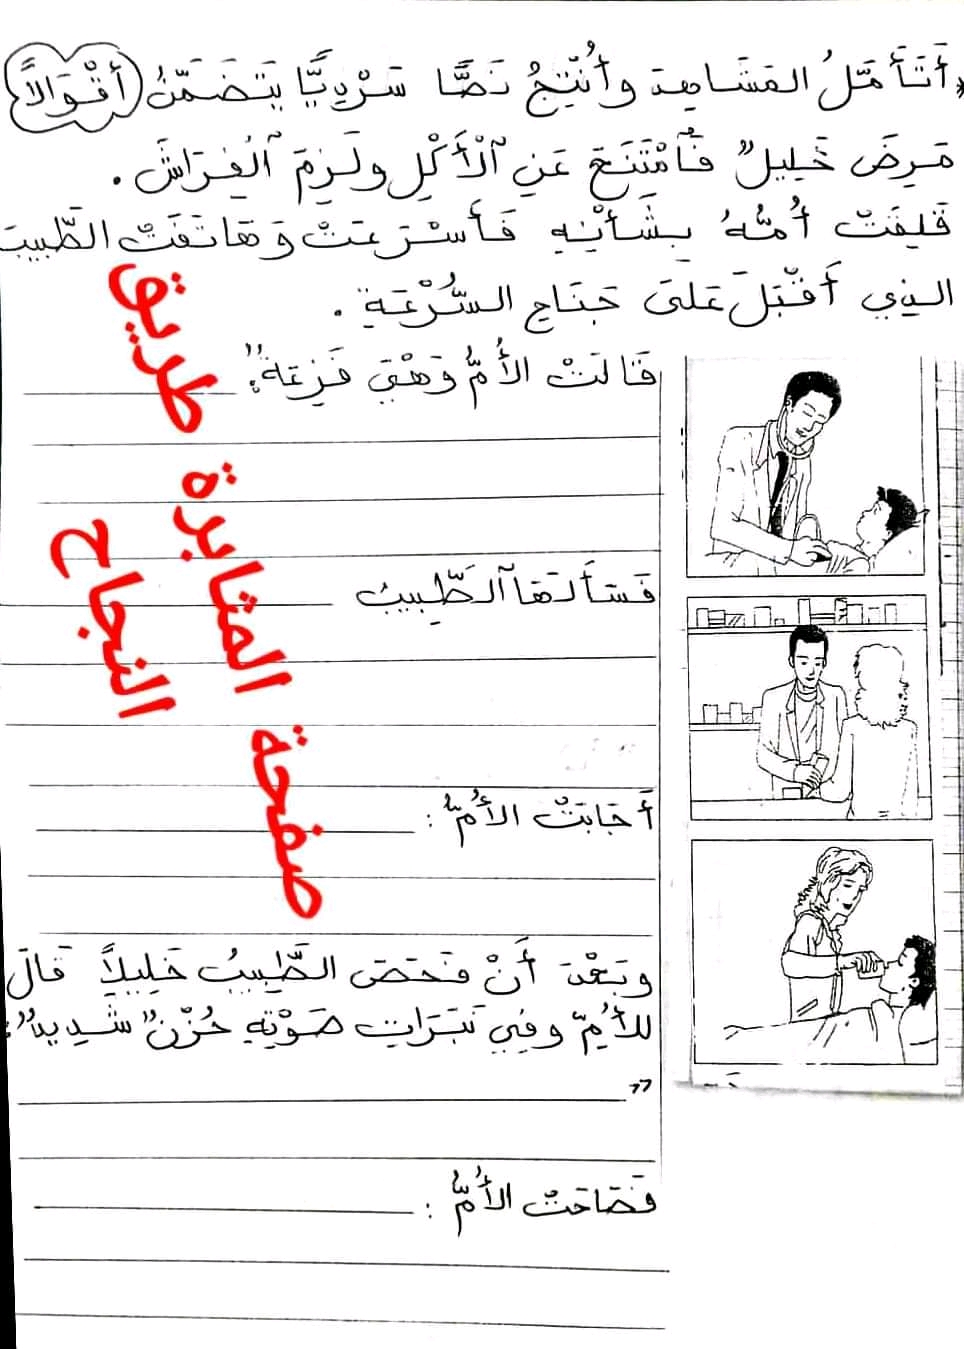 أَتَأَمَّلُ المَشَاهِدَ وأُنْتِجُ نَصًّا سَرْدِيًّا يَتَضَمَّنُ أَقْوَالاً
مَرِضَ خَلِيلٌ فَٱمْتَنَعَ عَنِ ٱلْأَكْلِ ولَزِمَ ٱلفِرَاشَ .
قَلِقَتْ أُمُّهُ بِشَأْنِهِ فَأَسْرَعَتْ وَهَاتَفَتْ الطَّبِيبَ
الذِي أَقْبَلَ عَلَى جَنَاحِ السُّرْعَةِ .
قَالَتْ الأُمُّ وَهْيَ فَزِعَةٌ:"
فَسَأَلَهَا ٱلطَّبِيبُ
أَجَابَتْ الأُمُّ :
وبَعْدَ أَنْ فَحَصَ الطَّبِيبُ خَلِيلاً قَالَ
للأُمِّ وفِي نَبَرَاتِ صَوْتِهِ حُزْنٌ شَدِيدٌ :
"
فَصَاحَتْ الأُمُّ :
صفحة المثابرة طريق
النجاح